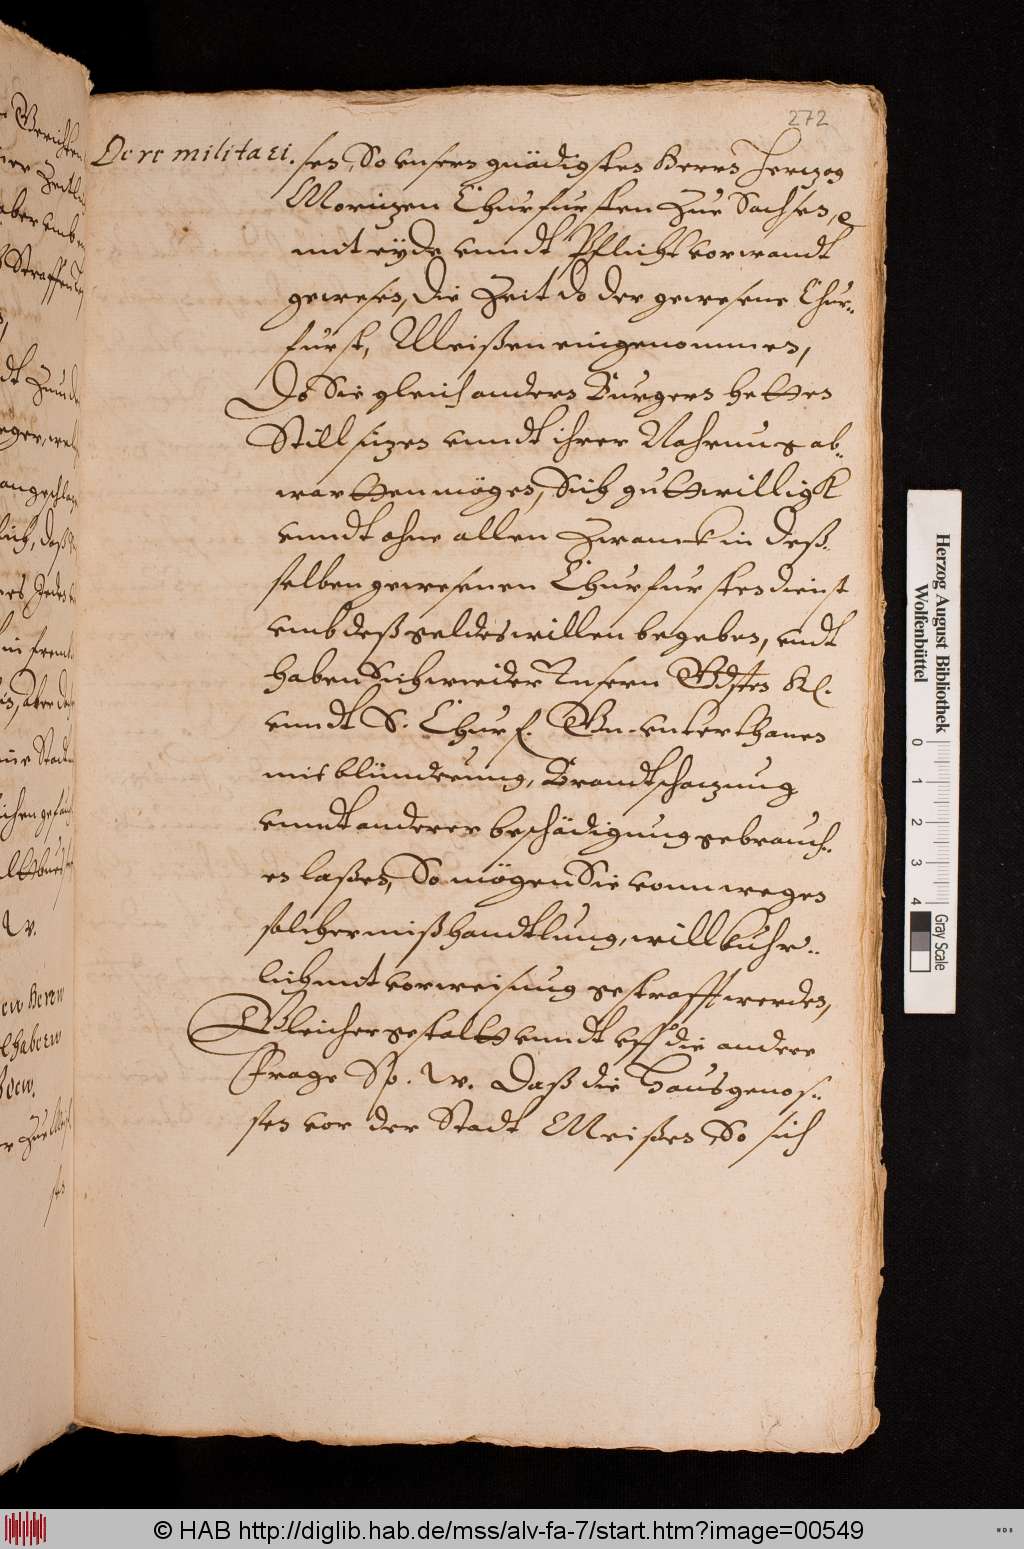 272
De re militari.
sen, So unsern gnädigsten Herrn Hertzog
Moritzen Churfursten Zue Sachsen, ꝛc
mit eyde vnndt Pflicht vorwandt
gewesen, Die Zeit do der gewesene Chur-
furst, Meißen eingenommen,
Do Sie gleich andern Burgern hetten
Still sitzen vnndt ihrer Nahrung ab-
wartten mögen, Sich guttwilligk
vnndt ohne allen Zwanck in deß-
selben gewesenen Churfursten dienst
vmb deß geldes willen begeben, vndt
haben Sich wieder Unsern Gdsten H.
vnndt S. Churf. Gn. vnterthanen
mit blünderung, Brandtschatzung
vnndt anderer beschädigung gebrauch-
en laßen, So mögen Sie vonn wegen
solcher mißhandtlung, willkuhr-
lich mit vorweisung gestrafft werden,
Gleicher gestaltt vnndt vff die andere
Frage Sp. W. Daß die Hausgenos-
sen vor der Stadt Meißen So sich
Herzog August Bibliothek
Wolfenbüttel
0 1 2 3 4
Gray Scale
© HAB http://diglib.hab.de/mss/alv-fa-7/start.htm?image=00549